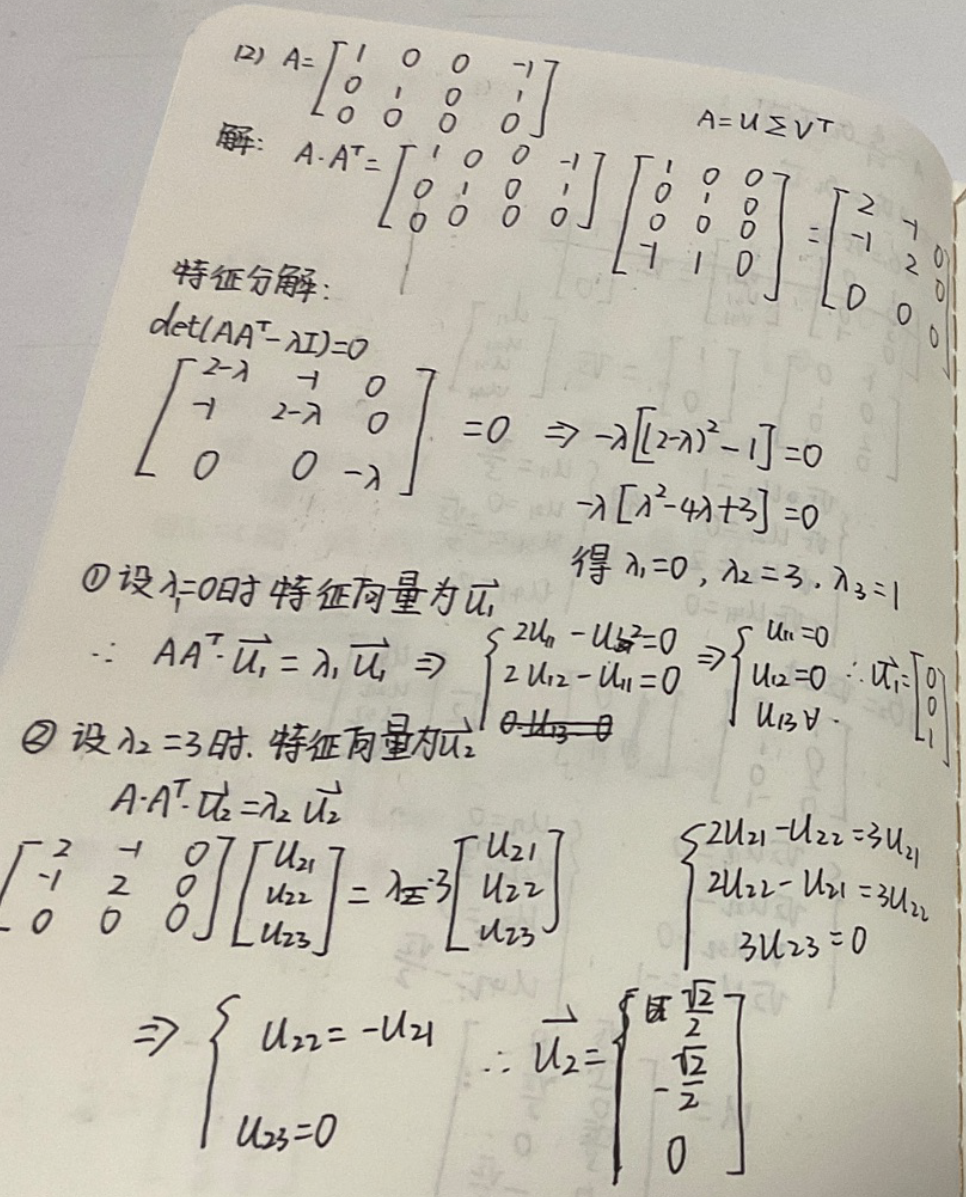 (2) A = [1 0 0 -1; 0 1 0 1; 0 0 0 0]
A = U Σ V^T
解: A·A^T = [1 0 0 -1; 0 1 0 1; 0 0 0 0] [1 0 0; 0 1 0; 0 0 0; -1 1 0] = [2 -1 0; -1 2 0; 0 0 0]
特征分解:
det(AA^T - λI) = 0
[2-λ -1 0; -1 2-λ 0; 0 0 -λ] = 0 ⇒ -λ[(2-λ)² - 1] = 0
-λ[λ² - 4λ + 3] = 0
得 λ₁=0, λ₂=3, λ₃=1
① 设λ₁=0时 特征向量为 u₁→
∴ AA^T·u₁→ = λ₁ u₁→ ⇒ { 2u₁₁ - u₁₂ = 0; 2u₁₂ - u₁₁ = 0 ⇒ { u₁₁ = 0; u₁₂ = 0; u₁₃ ∀. ∴ u₁→ = [0; 0; 1]
② 设λ₂=3时. 特征向量为 u₂→
A·A^T·u₂→ = λ₂ u₂→
[2 -1 0; -1 2 0; 0 0 0] [u₂₁; u₂₂; u₂₃] = 3 [u₂₁; u₂₂; u₂₃]
{ 2u₂₁ - u₂₂ = 3u₂₁; 2u₂₂ - u₂₁ = 3u₂₂; 3u₂₃ = 0
⇒ { u₂₂ = -u₂₁; u₂₃ = 0 ∴ u₂→ = [√2/2; -√2/2; 0]